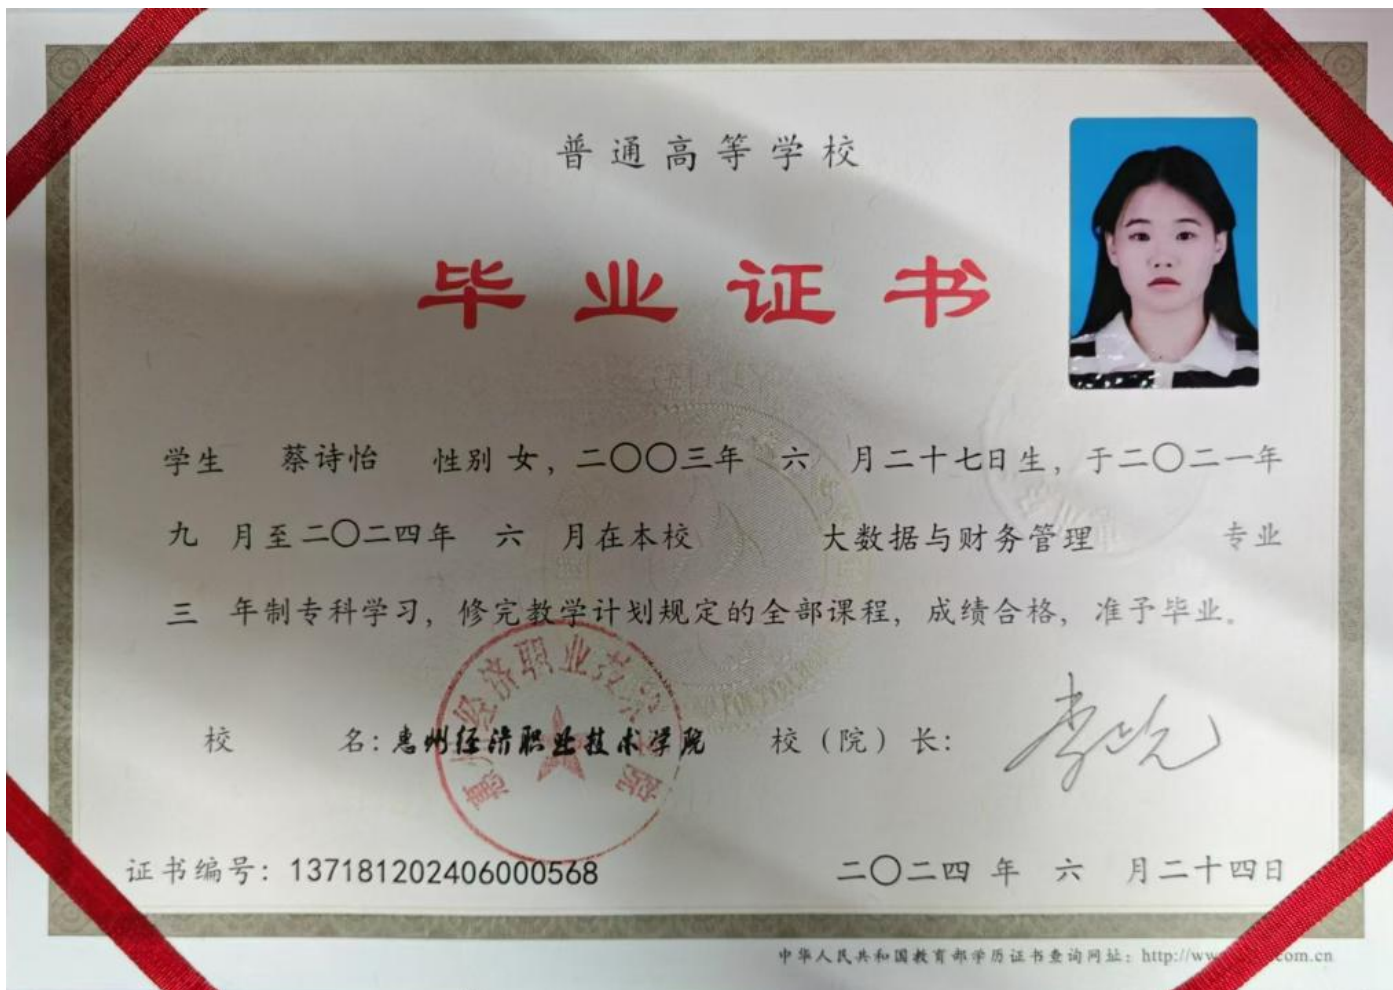 普通高等学校
毕业证书
学生 蔡诗怡 性别 女，二〇〇三年 六 月二十七日生，于二〇二一年
九 月至二〇二四年 六 月在本校 大数据与财务管理 专业
三 年制专科学习，修完教学计划规定的全部课程，成绩合格，准予毕业。
校 名：惠州经济职业技术学院 校（院）长：
惠州经济职业技术学院
证书编号：137181202406000568 二〇二四 年 六 月二十四日
中华人民共和国教育部学历证书查询网址：http://ww
om.cn